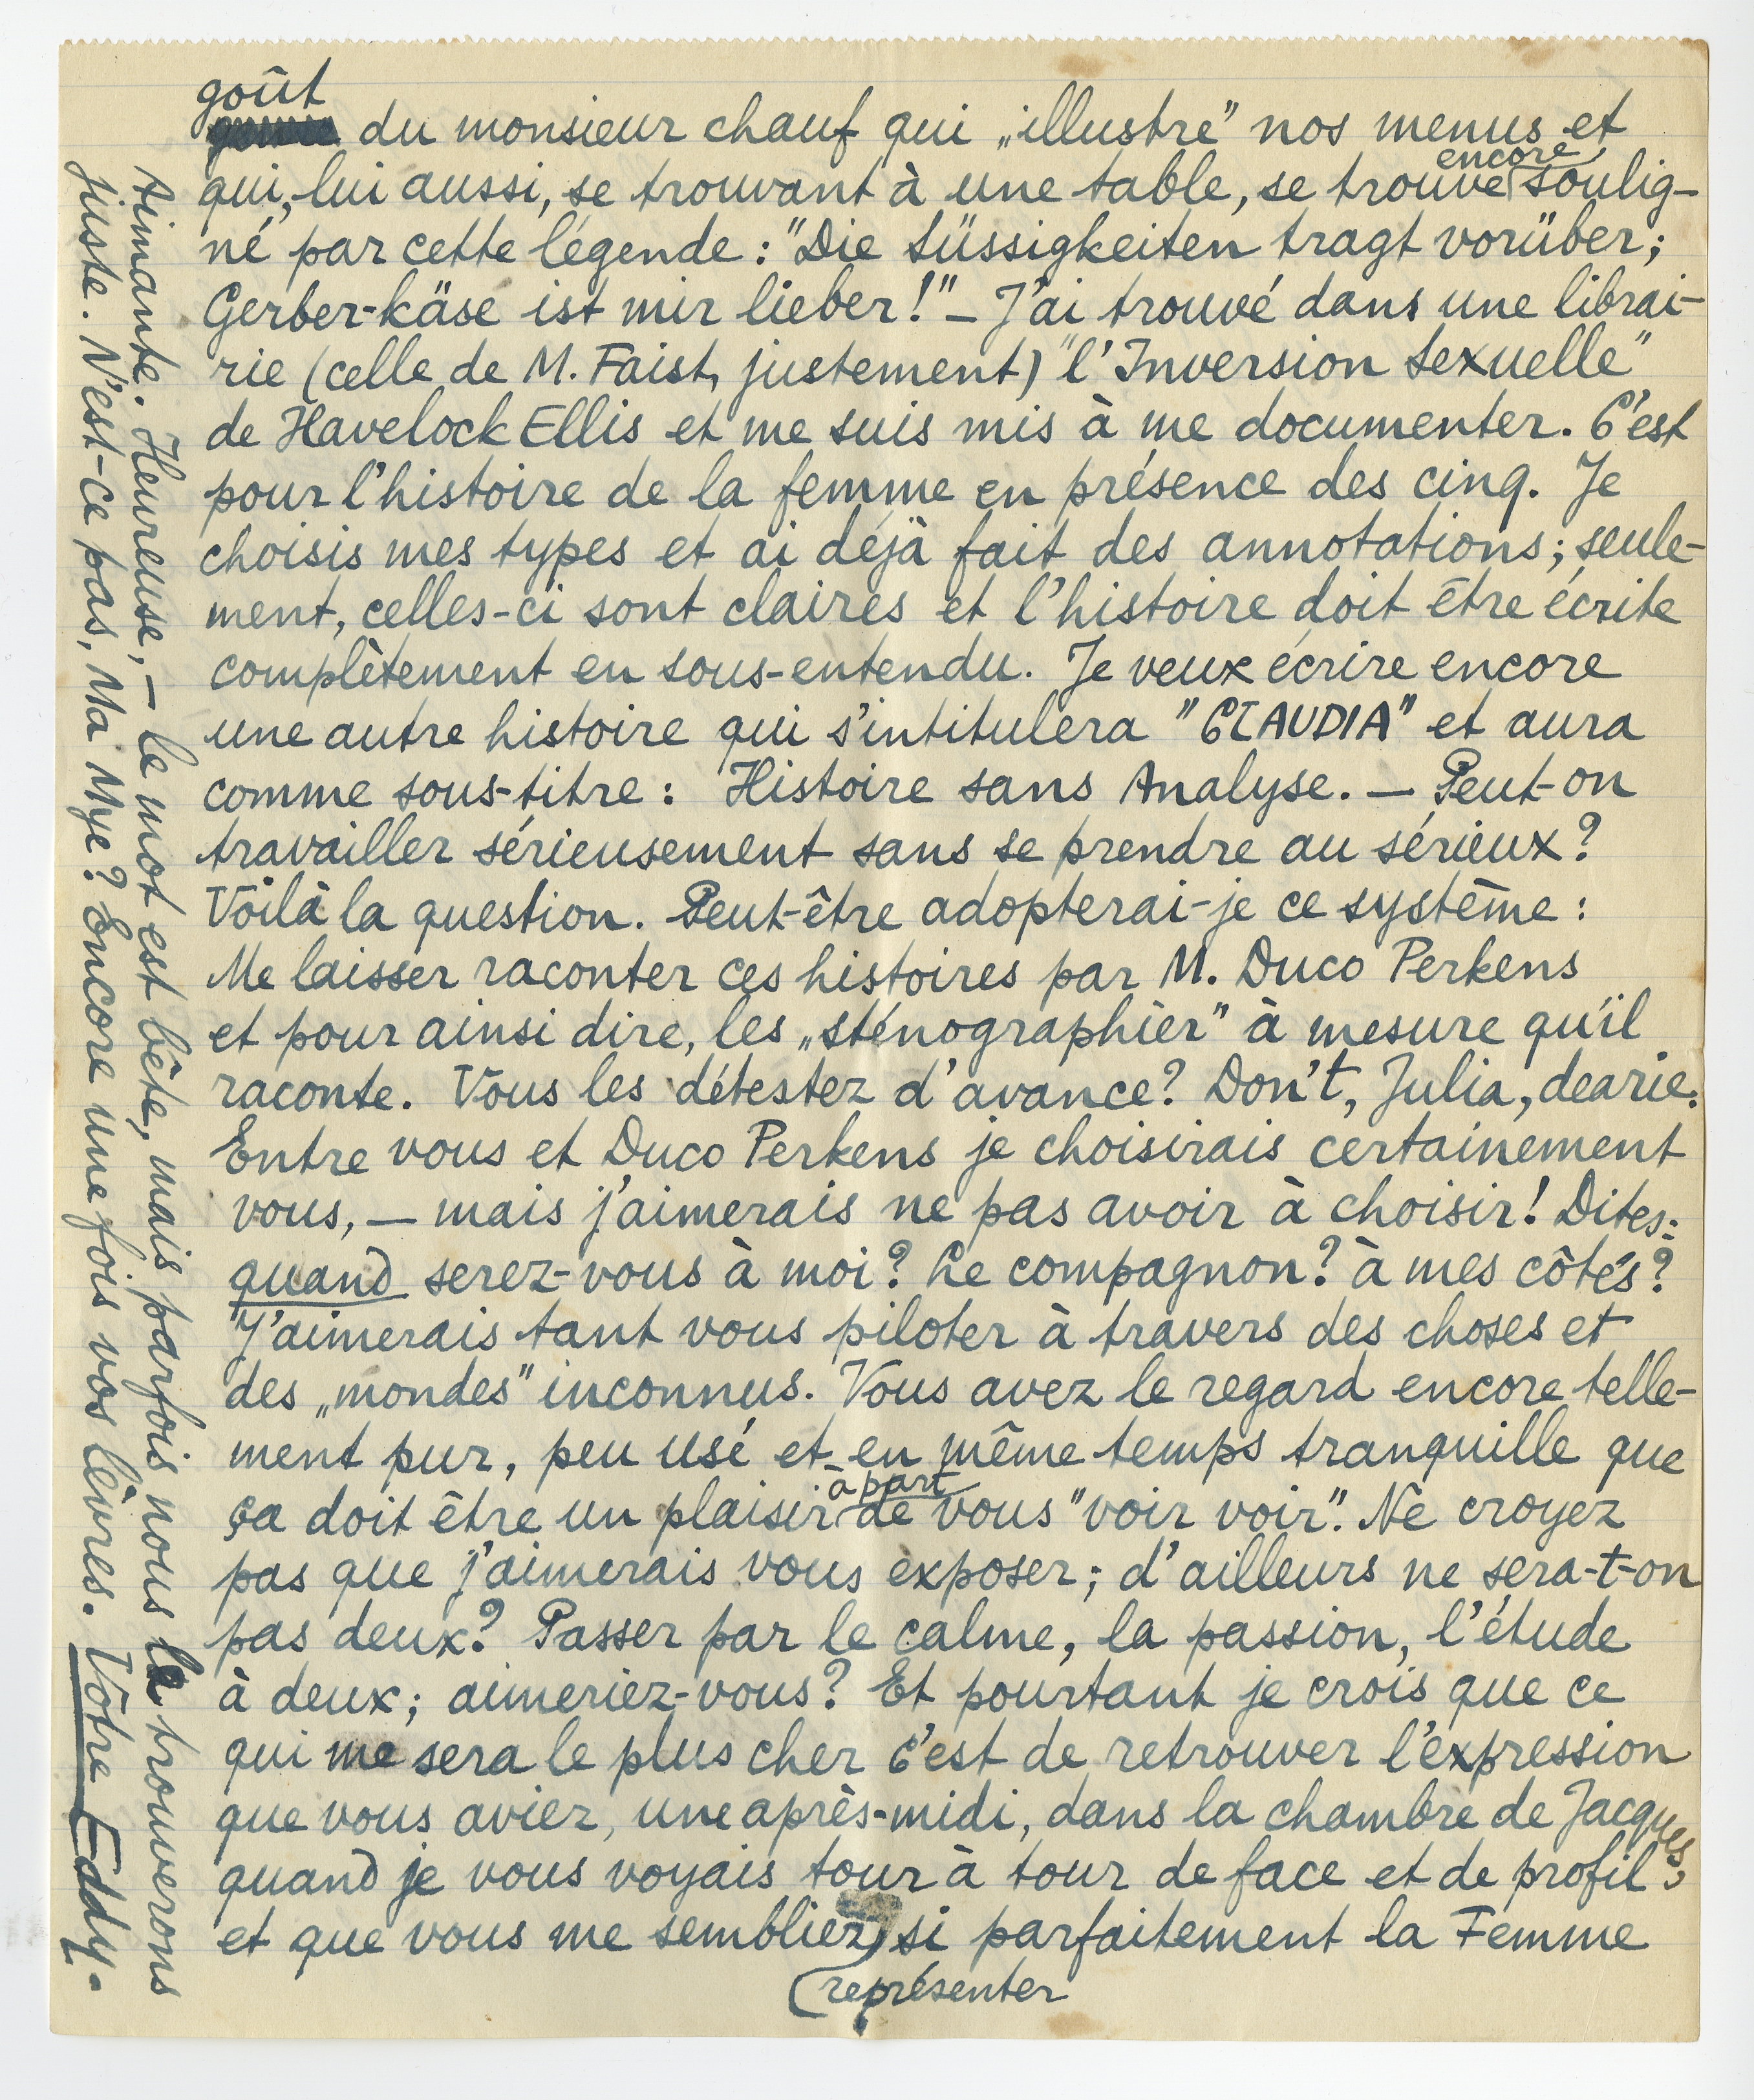 goût
du monsieur chauf qui „illustre” nos menus et
encore
qui, lui aussi, se trouvant à une table, se trouve soulig-
né par cette légende : "Die Süssigkeiten tragt vorüber;
Gerber-käse ist mir lieber!" — J'ai trouvé dans une librai-
rie (celle de M. Faist, justement) "l'Inversion Sexuelle"
de Havelock Ellis et me suis mis à me documenter. C'est
pour l'histoire de la femme en présence des cinq. Je
choisis mes types et ai déjà fait des annotations; seule-
ment, celles-ci sont claires et l'histoire doit être écrite
complètement en sous-entendu. Je veux écrire encore
une autre histoire qui s'intitulera "CLAUDIA" et aura
comme sous-titre : Histoire sans Analyse. — Peut-on
travailler sérieusement sans se prendre au sérieux?
Voilà la question. Peut-être adopterai-je ce système :
Me laisser raconter ces histoires par M. Duco Perkens
et pour ainsi dire, les „sténographier” à mesure qu'il
raconte. Vous les détestez d'avance? Don't, Julia, dearie.
Entre vous et Duco Perkens je choisirais certainement
vous, — mais j'aimerais ne pas avoir à choisir! Dites:
quand serez-vous à moi? Le compagnon? à mes côtés?
J'aimerais tant vous piloter à travers des choses et
des „mondes” inconnus. Vous avez le regard encore telle-
ment pur, peu usé et en même temps tranquille que
à part
ça doit être un plaisir de vous "voir voir". Ne croyez
pas que j'aimerais vous exposer; d'ailleurs ne sera-t-on
pas deux? Passer par le calme, la passion, l'étude
à deux; aimeriez-vous? Et pourtant je crois que ce
qui me sera le plus cher c'est de retrouver l'expression
que vous aviez, une après-midi, dans la chambre de Jacques,
quand je vous voyais tour à tour de face et de profil
et que vous me sembliez si parfaitement la Femme
représenter
Aimante. Heureuse, — le mot est bête, mais parfois nous le trouverons
juste. N'est-ce pas, Ma Mye? Encore une fois vos lèvres. Vôtre Eddy.